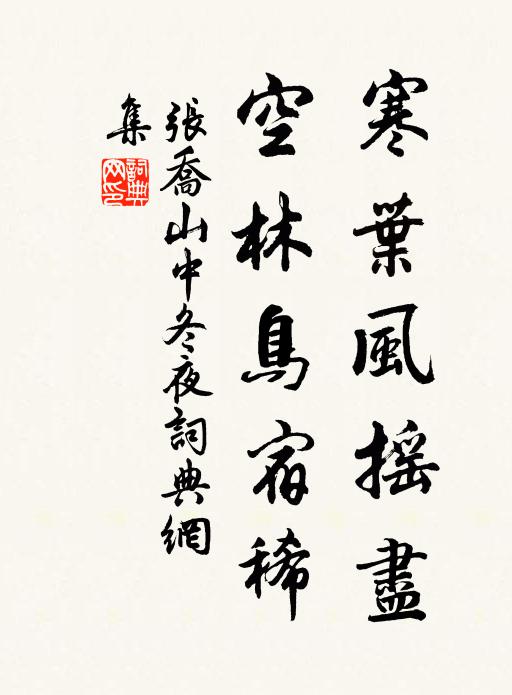 寒葉風摇盡
空林鳥宿稀
張喬山中冬夜詞典網
集
詞典
网印